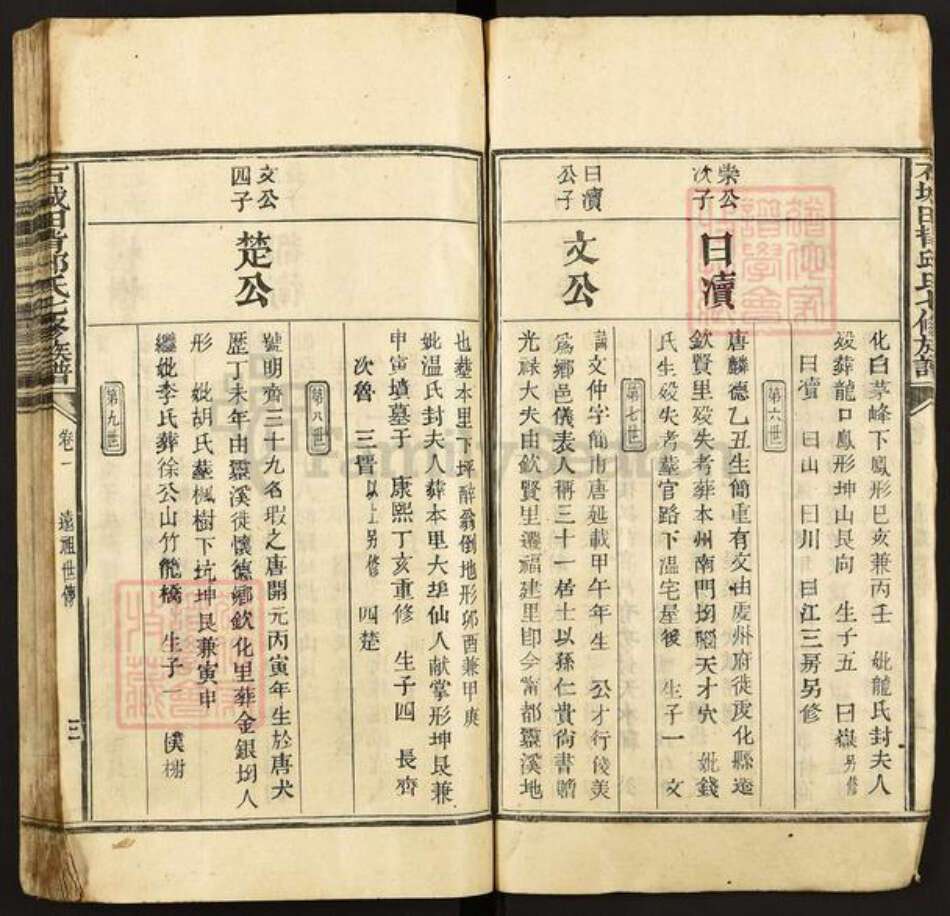 化白茅峰下鳳形巳亥兼丙壬　妣龍氏封夫人
歿葬龍口鳳形坤山艮向　生子五　曰嶽另修
曰瀆　曰山　曰川　曰江三房另修
第六世
崇公次子
曰瀆
唐麟德乙丑生簡重有文由虔州府徙虔化縣遷
欽賢里歿失考葬本州南門坳腦天才穴　妣錢
氏生歿失考葬官路下溫宅屋後　生子一　文
第七世
曰瀆公子
文公
諱文仲字簡甫唐延載甲午年生　公才行俊美
為鄉邑儀表人稱三十一居士以孫仁貴尚書贈
光祿大夫由欽賢里遷福建里即今甯都靈溪地
也葬本里下坪醉翁倒地形卯酉兼甲庚
妣溫氏封夫人葬本里大坪仙人献掌形坤艮兼
申寅墳墓于　康熙丁亥重修　生子四　長齊
次魯　三晉以上另修　四楚
第八世
文公四子
楚公
號明齊三十九名瑕之唐開元丙寅年生於唐大
歷丁未年由靈溪徙懷德鄉欽化里葬金銀坳人
形　妣胡氏葬楓樹下坑坤艮兼寅申
繼妣李氏葬徐公山竹篙橋　生子一　僕榭
第九世
石城田背邱氏七修族譜
卷一　遠祖世傳
三
石城田背邱氏七修族譜